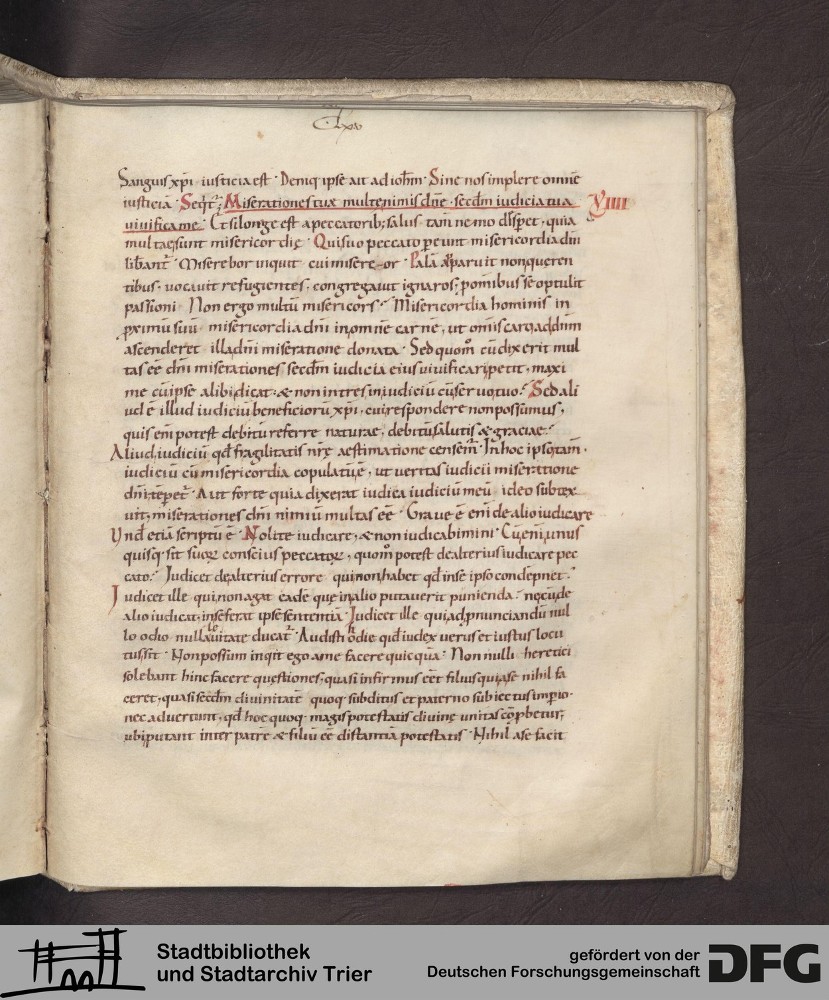 Clxv
Sanguis xp̄i iusticia est · Deniq; ipse ait ad ioh̄m · Sine nos implere omnē
iusticiā · Seq̄t̄ · Miserationes tuę multę nimis dn̄e · sec̄dm iudicia tua VIIII
uiuifica me · Et si longe est a peccatorib; salus · tam̄ nemo despet · quia
multae sunt misericordię · Qui suo peccato peunt misericordia dn̄i
liƀant̄ · Miserebor inquit cui misereor · Palā apparuit non querentibus
tibus · uocauit refugientes, congregauit ignaros; pomnibus se optulit
passioni · Non ergo multū misericors · Misericordia hominis in
pximū suū · misericordia dn̄i in omnē carnē, ut omis caro ad dn̄m
ascenderet · illa dn̄i miseratione donata · Sed quom̊ cū dixerit mul
tas eē dn̄i miserationes sec̄dm iudicia eius uiuificari petit, maxi
me cū ipse alibi dicat · & non intres in iudiciū cū seruo tuo · Sed ali
ud ē illud iudiciū beneficiorū xp̄i, cui respondere non possumus,
quis enī potest debitū referre naturae, debitū salutis & graciae ·
Aliud iudiciū qd̄ fragilitatis nr̄ę aestimatione censem̄ · In hoc ipso tam̄
iudiciū cū misericordia copulatū ē, ut ueritas iudicii miseratione
dn̄i tēperet̄ · Aut forte quia dixerat iudica iudiciū meū · ideo subtex
uit, miserationes dn̄i nimiū multas eē · Graue ē enī de alio iudicare
Vnd̄ etiā scriptū ē · Nolite iudicare, & non iudicabimini · Cū enī unus
quisq; sit suoꝝ conscius peccatoꝝ, quom̊ potest de alterius iudicare pec
cato · Iudicet de alterius errore qui non habet qd̄ in se ipso condepnet ·
Iudicet ille qui non agat eadē que in alio putauerit punienda · ne cū de
alio iudicat, in se ferat ipse sententiā · Iudicet ille qui ad pnunciandū nul
lo odio nulla leuitate ducat̄ · Audisti hodie qd̄ iudex uerus et iustus locu
tus sit · Non possum inqit ego a me facere quicquā · Non nulli heretici
solebant hinc facere quęstiones, quasi infirmus eēt filius qui a se nihil fa
ceret, quasi sec̄dm diuinitatē quoq; subditus et paterno subiectus imperio
nec aduertunt, qd̄ hoc quoq; magis potestatis diuinę unitas cōpbetur,
ubi putant inter patrē & filiū eē distantiā potestatis · Nihil a se facit
Stadtbibliothek
und Stadtarchiv Trier
gefördert von der
Deutschen Forschungsgemeinschaft
DFG